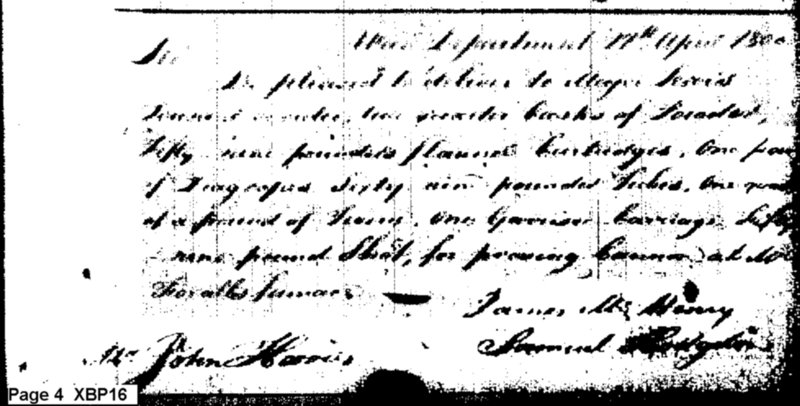 War Department 17th April 1800
Sir
Be pleased to deliver to Major Lewis
two quarter Casks of Powder,
Fifty nine pounders flannel Cartridges, One
of Sixty nine pounder Tubes, One
of a pound of Twine, One Garrison Carriage, Fifty
nine pound Shot, for proving Cannon at Mr
Foxalls furnace
James McHenry
Mr John Harris
Samuel Hodgdon
Page 4 XBP16